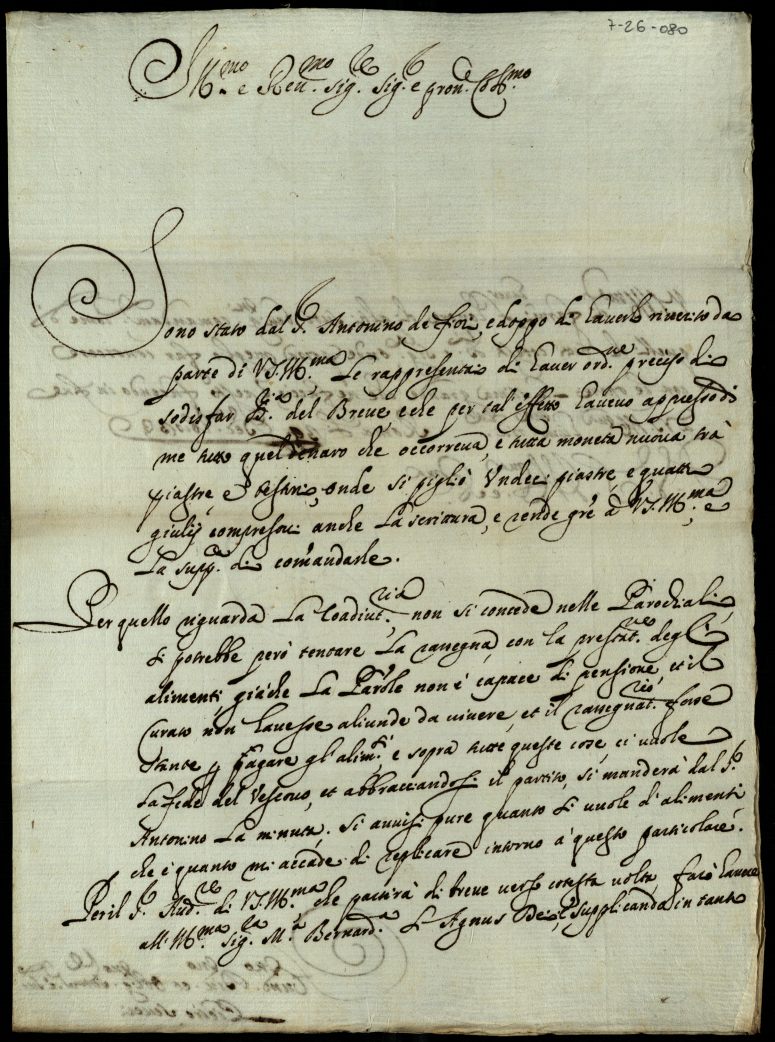 7-26-080
Ill.mo e Reu.mo Sig.re Sig.r e Pron.e Coll.mo
Sono stato dal S.r Antonino de fori, e doppo di hauerle riuerito da
parte di V.S.Ill.ma le rappresentai di hauer ord.ne preciso di
sodisfar del Breue, e che per tal'effetto haueuo appresso di
me tutto quel denaro che occorreua, e tutta moneta nuoua trà
piastre, e testoni, onde si pigliò Undeci piastre, e quattro
giulij compresoui anche la scrittura, e rende gr.e à V.S.Ill.ma, e
la supp.ca di comandarle.
Per quello riguarda la Coadiut.ria non si concede nelle Parochiali,
si potrebbe però tentare la rasegna, con la prestat.ne degli
alimenti giàche la Par.le non è capace di pensione, et il
Curato non hauesse aliunde da viuere, et il rasegnat.rio fosse
stante p. pagare gl'alim.ti, e sopra tutte queste cose, ci vuole
la fede del Vescouo, et abbracciandosi il partito, si manderà dal S.r
Antonino la minuta. Si auuisi pure quanto si vuole d'alimenti
che è quanto mi accade di replicare intorno à questo particolare.
Per il S.r Aud.re di V.S.Ill.ma che partirà di breue verso cotesta volta, farò hauere
all'Ill.ma Sig.ra M.a Bernard.a l'Agnus Dei, supplicanda in tanto